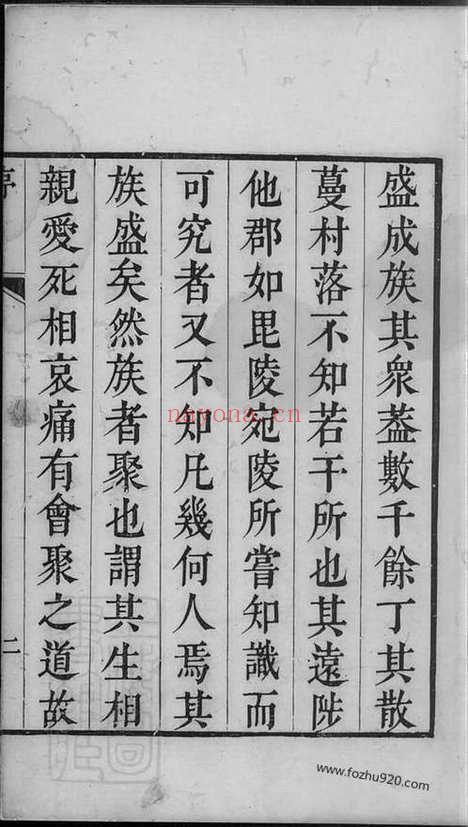 盛成族其衆葢數千餘丁其散
蔓村落不知若干所也其遠陟
他郡如毘陵宛陵所嘗知識而
可究者又不知凡幾何人焉其
族盛矣然族者聚也謂其生相
親愛死相哀痛有會聚之道故
二
nayona.cn
www.fozhu920.com